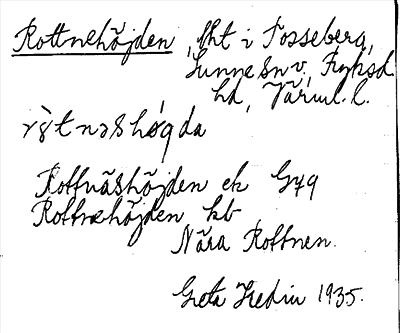 Rottnehöjden, lht i Tosseberg,
Sunne sn v, Fryksd
hd, Värml. l.
rò̀tnəshø̀gda
Rottnäshöjden ek G49
Rottnehöjden kb
Nära Rottnen.
Greta Hedin 1935.